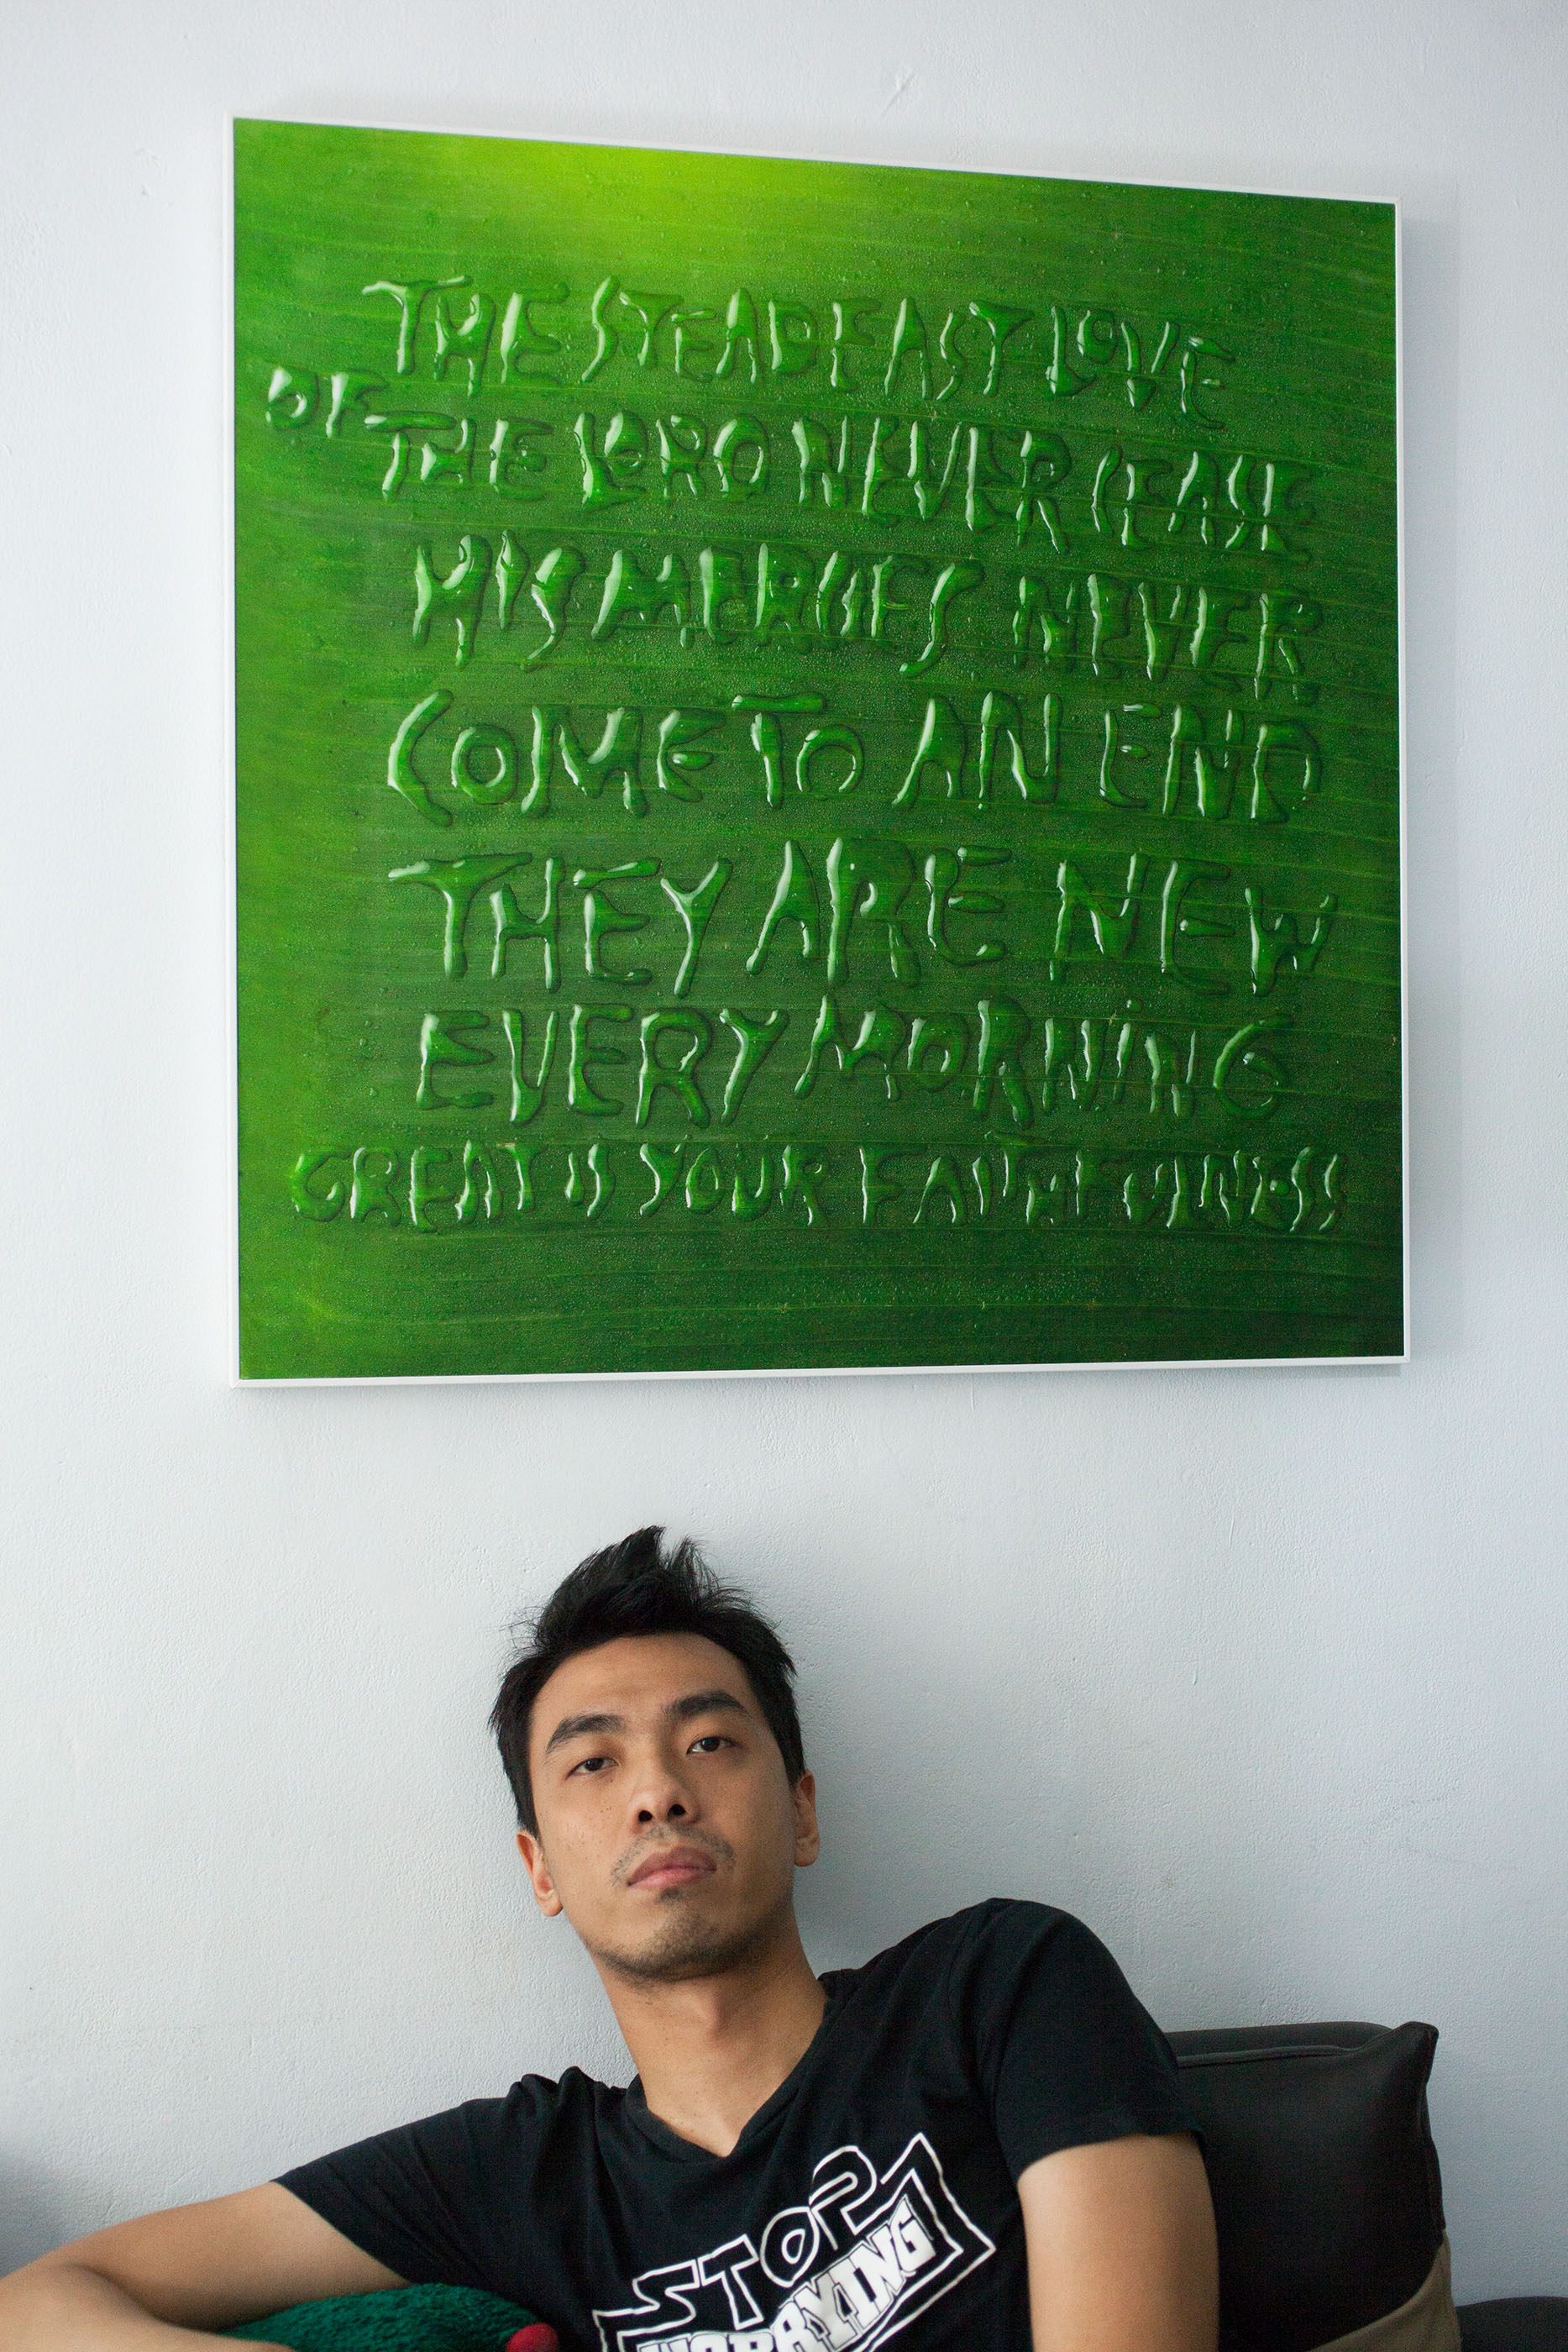 THE STEADFAST LOVE
OF THE LORD NEVER CEASE
HIS MERCIES NEVER
COME TO AN END
THEY ARE NEW
EVERY MORNiNG
GREAT IS YOUR FAITHFULNESS
STOP
WORRYING